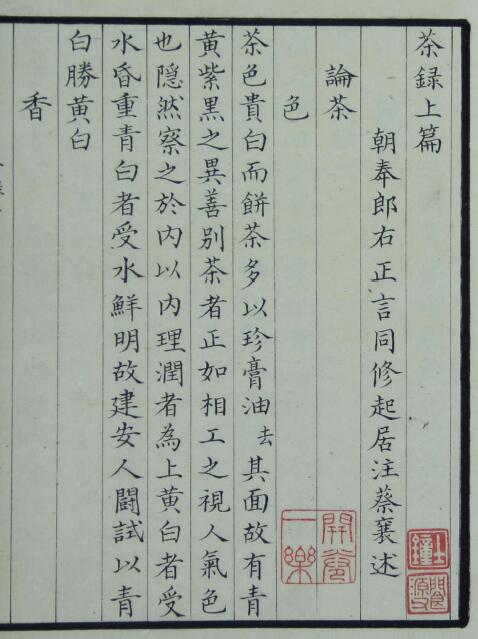 茶録上篇
朝奉郎右正言同修起居注蔡襄述
論茶
色
茶色貴白而餅茶多以珍膏油去其面故有青
黄紫黑之異善别茶者正如相工之視人氣色
也隱然察之於内以内理潤者為上黄白者受
水昏重青白者受水鮮明故建安人闘試以青
白勝黄白
香
開卷
一樂